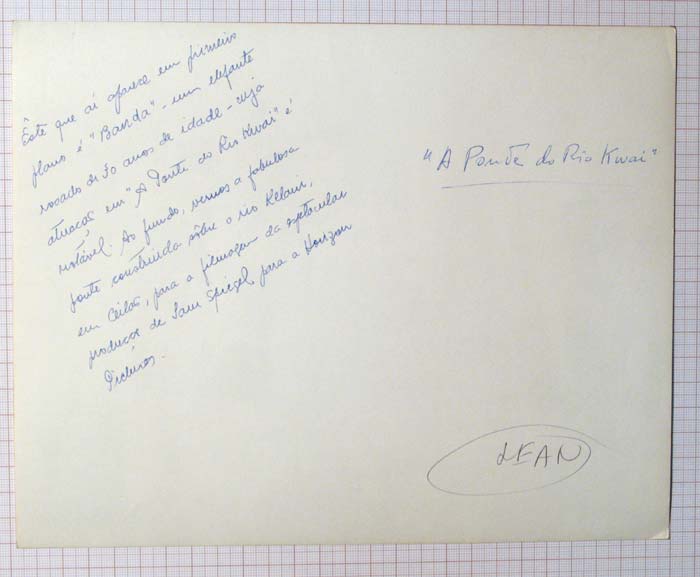 Êste que aí aparece em primeiro
plano é "Banda" - um elefante
rosado de 30 anos de idade - cuja
atuação em "A Ponte do Rio Kwai" é
notável. Ao fundo, vemos a fabulosa
ponte construída sôbre o rio Kelani,
em Ceilão, para a filmagem da espetacular
produção de Sam Spiegel para a Horizon
Pictures.
"A Ponte do Rio Kwai"
LEAN